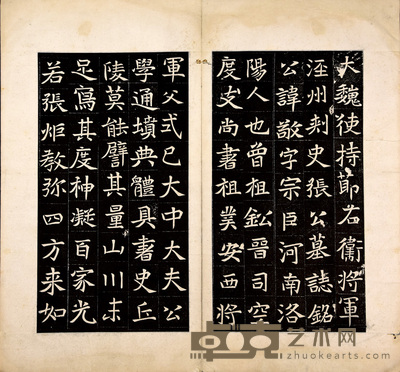 大魏使持節右衞將軍
涇州刾史張公墓誌銘
公諱敬字宗臣河南洛
陽人也曾祖鈆晉司空
度支尚書祖業安西將
軍父式巳大中大夫公
學通墳典體具書史丘
陵莫能譬其量山川未
足寫其度神凝百家光
若張炬教弥四方来如
卓克艺术网
zhuokearts.com